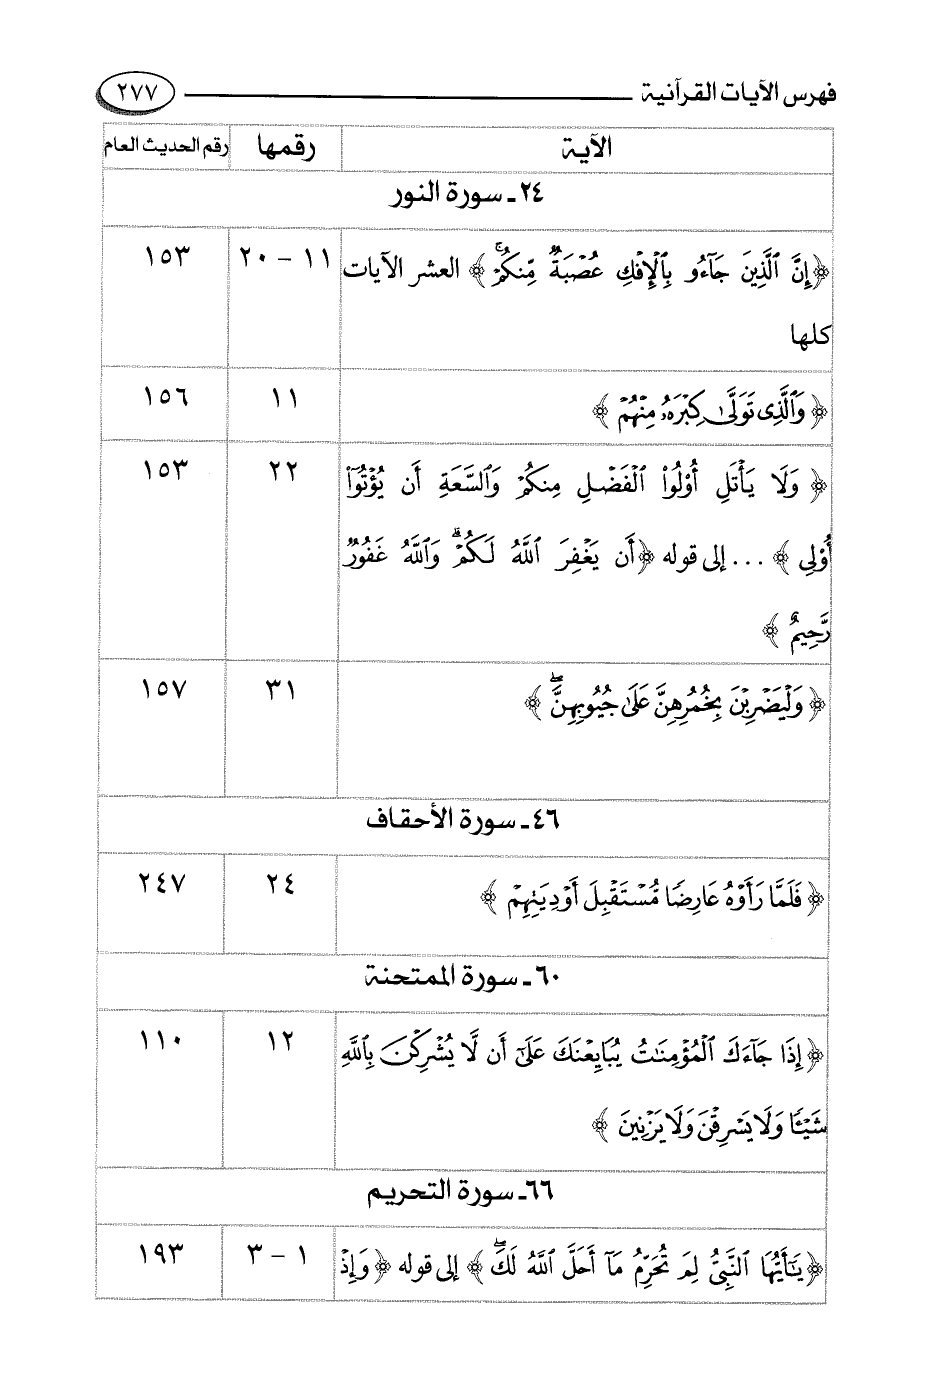 فهرس الآيات القرآنية ٢٧٧
الآية رقمها رقم الحديث العام
٢٤ـ سورة النور
﴿إِنَّ ٱلَّذِينَ جَآءُو بِٱلْإِفْكِ عُصْبَةٌ مِّنكُمْ ۚ﴾ العشر الآيات ١١ - ٢٠ ١٥٣
كلها
﴿وَٱلَّذِى تَوَلَّىٰ كِبْرَهُۥ مِنْهُمْ﴾ ١١ ١٥٦
﴿وَلَا يَأْتَلِ أُو۟لُوا۟ ٱلْفَضْلِ مِنكُمْ وَٱلسَّعَةِ أَن يُؤْتُوٓا۟ ٢٢ ١٥٣
أُو۟لِى﴾ ... إلى قوله ﴿أَن يَغْفِرَ ٱللَّهُ لَكُمْ ۗ وَٱللَّهُ غَفُورٌ
رَّحِيمٌ﴾
﴿وَلْيَضْرِبْنَ بِخُمُرِهِنَّ عَلَىٰ جُيُوبِهِنَّ ۖ﴾ ٣١ ١٥٧
٤٦ـ سورة الأحقاف
﴿فَلَمَّا رَأَوْهُ عَارِضًا مُّسْتَقْبِلَ أَوْدِيَتِهِمْ﴾ ٢٤ ٢٤٧
٦٠ـ سورة الممتحنة
﴿إِذَا جَآءَكَ ٱلْمُؤْمِنَٰتُ يُبَايِعْنَكَ عَلَىٰٓ أَن لَّا يُشْرِكْنَ بِٱللَّهِ ١٢ ١١٠
شَيْـًٔا وَلَا يَسْرِقْنَ وَلَا يَزْنِينَ﴾
٦٦ـ سورة التحريم
﴿يَٰٓأَيُّهَا ٱلنَّبِىُّ لِمَ تُحَرِّمُ مَآ أَحَلَّ ٱللَّهُ لَكَ ۖ﴾ إلى قوله ﴿وَإِذْ ١ - ٣ ١٩٣